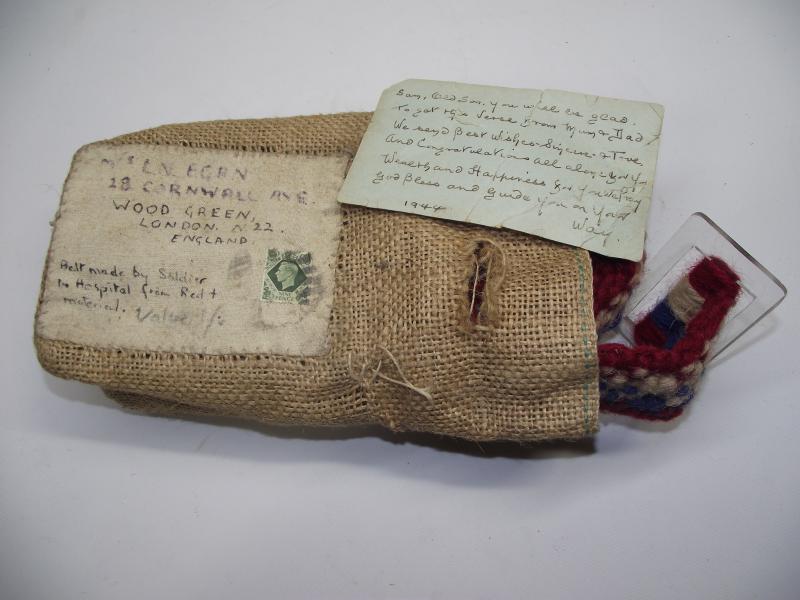 Mrs L.V. EGAN
28 CORNWALL AVE.
WOOD GREEN,
LONDON. N 22.
ENGLAND.
Belt made by Soldier
in Hospital from Red +
material. Value 1/-
NINE PENCE
Son, Old Son. you will be glad.
To get this Verse from Mum & Dad
We send Best Wishes. Sincere & True
And Congratulations all along for you
Wealth and Happiness
God Bless and Guide you on your
Way.
1944